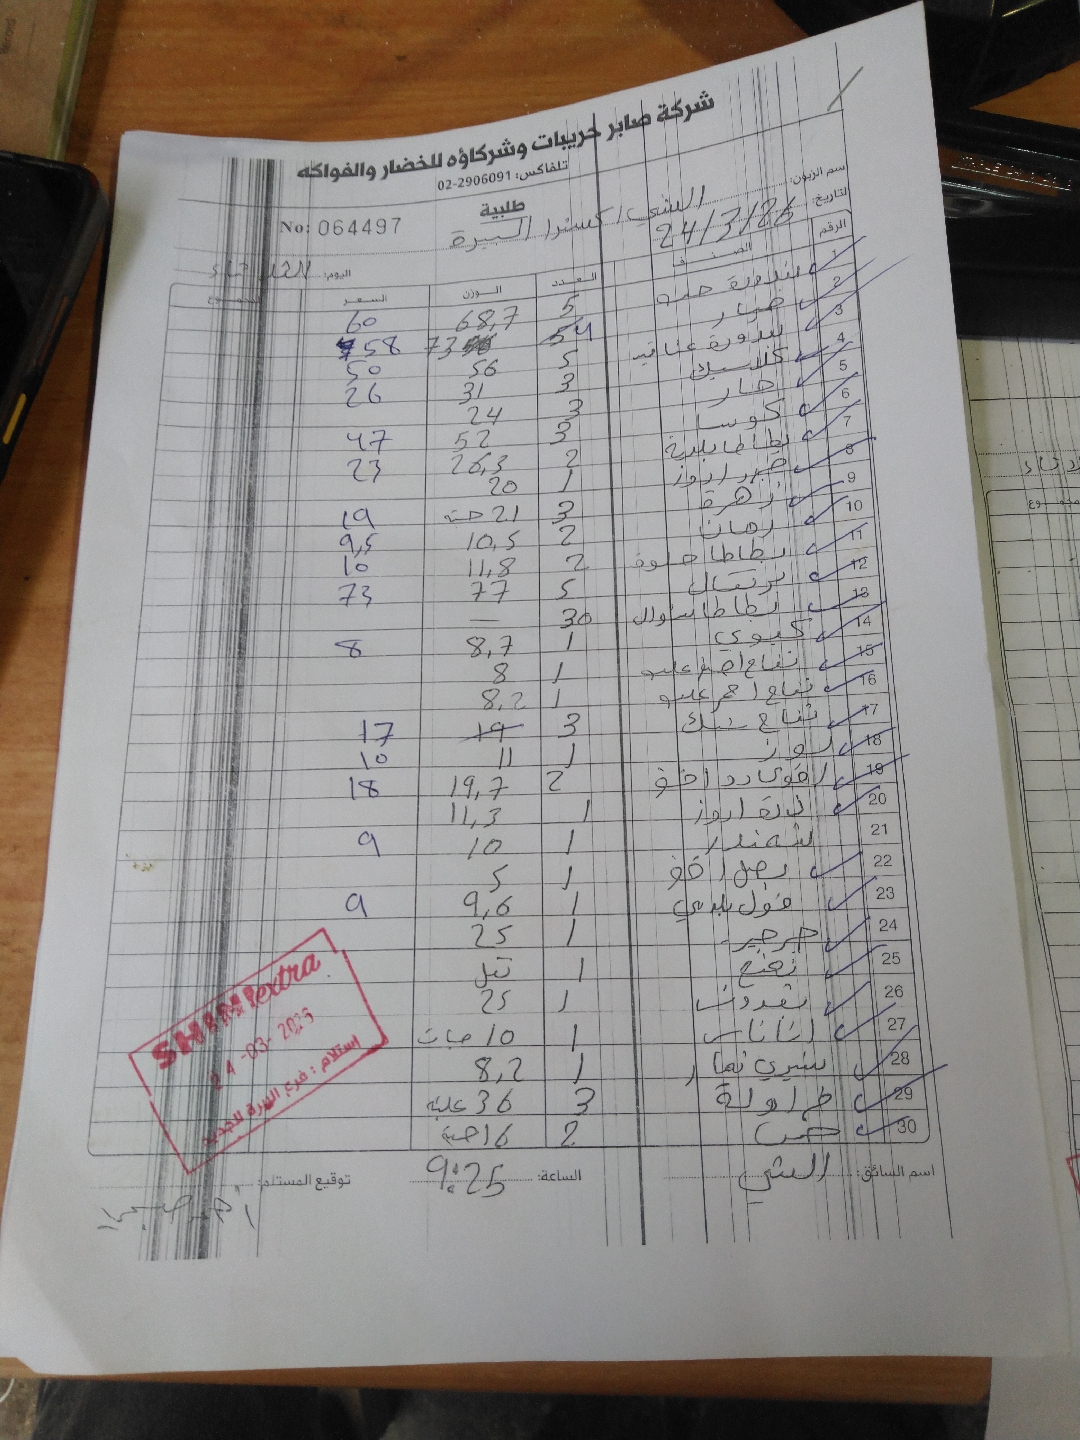 شركة صابر حريبات وشركاؤه للخضار والفواكه
تلفاكس: 02-2906091
طلبية
No: 064497
اسم الزبون: الشني اكسترا البيرة
التاريخ: 24/3/26
اليوم: الثلاثاء
الرقم الصنف العدد الوزن السعر المجموع
1 بندورة حبه 5 68,7 60
2 خيار 54 73 58
3 بندورة عناقيد 5 56 50
4 كلاسيك 3 31 26
5 خيار 3 24
6 كوسا 3 52 47
7 بطاطا بلدية 2 26,3 23
8 جزر ابوز 1 20
9 زهرة 3 21 حبه 19
10 رمان 2 10,5 9,5
11 بطاطا حلوة 2 11,8 10
12 برتقال 5 77 73
13 بطاطا شوال 30 —
14 كيوي 1 8,7 8
15 تفاح اخضر عليه 1 8
16 تفاح احمر عليه 1 8,2
17 تفاح سنك 3 19 17
18 لوز 1 11 10
19 افوكادو اخضر 2 19,7 18
20 لدة ابوز 1 11,3
21 شمندر 1 10 9
22 بصل اخضر 1 5
23 فول بلدي 1 9,6 9
24 جرجير 1 25
25 نعنع 1
26 بقدونس 1 25
27 اناناس 1 10 حبات
28 شيري تمار 1 8,2
29 فراولة 3 36 علبة
30 خس 2 16 حبة
SHINI extra
24-03-2026
إستلام: فرع البيرة الجديد
اسم السائق: الشني
الساعة: 9:25
توقيع المستلم: